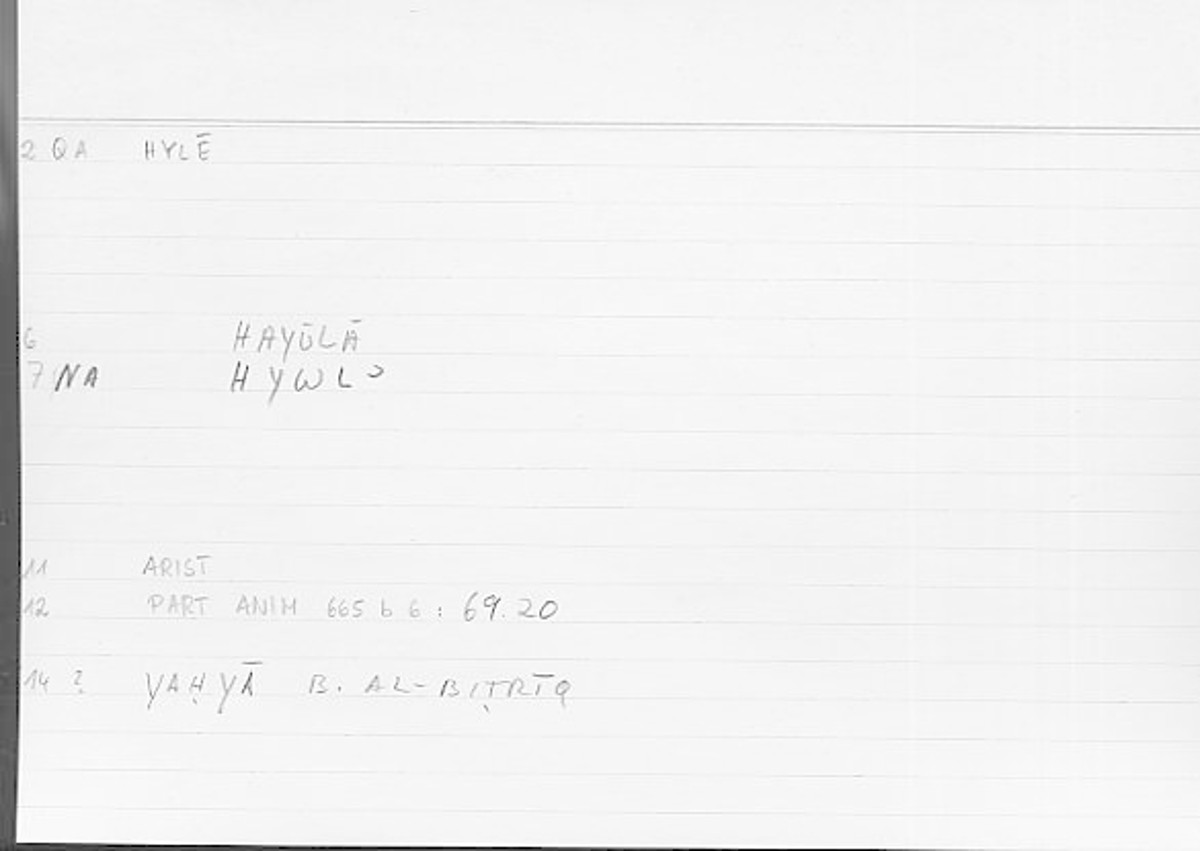 2 QA HYLĒ
6 HAYŪLĀ
7 NA HYWLʾ
11 ARIST
12 PART ANIM 665 b 6 : 69.20
14 ? YAḤYĀ B. AL-BIṬRĪQ